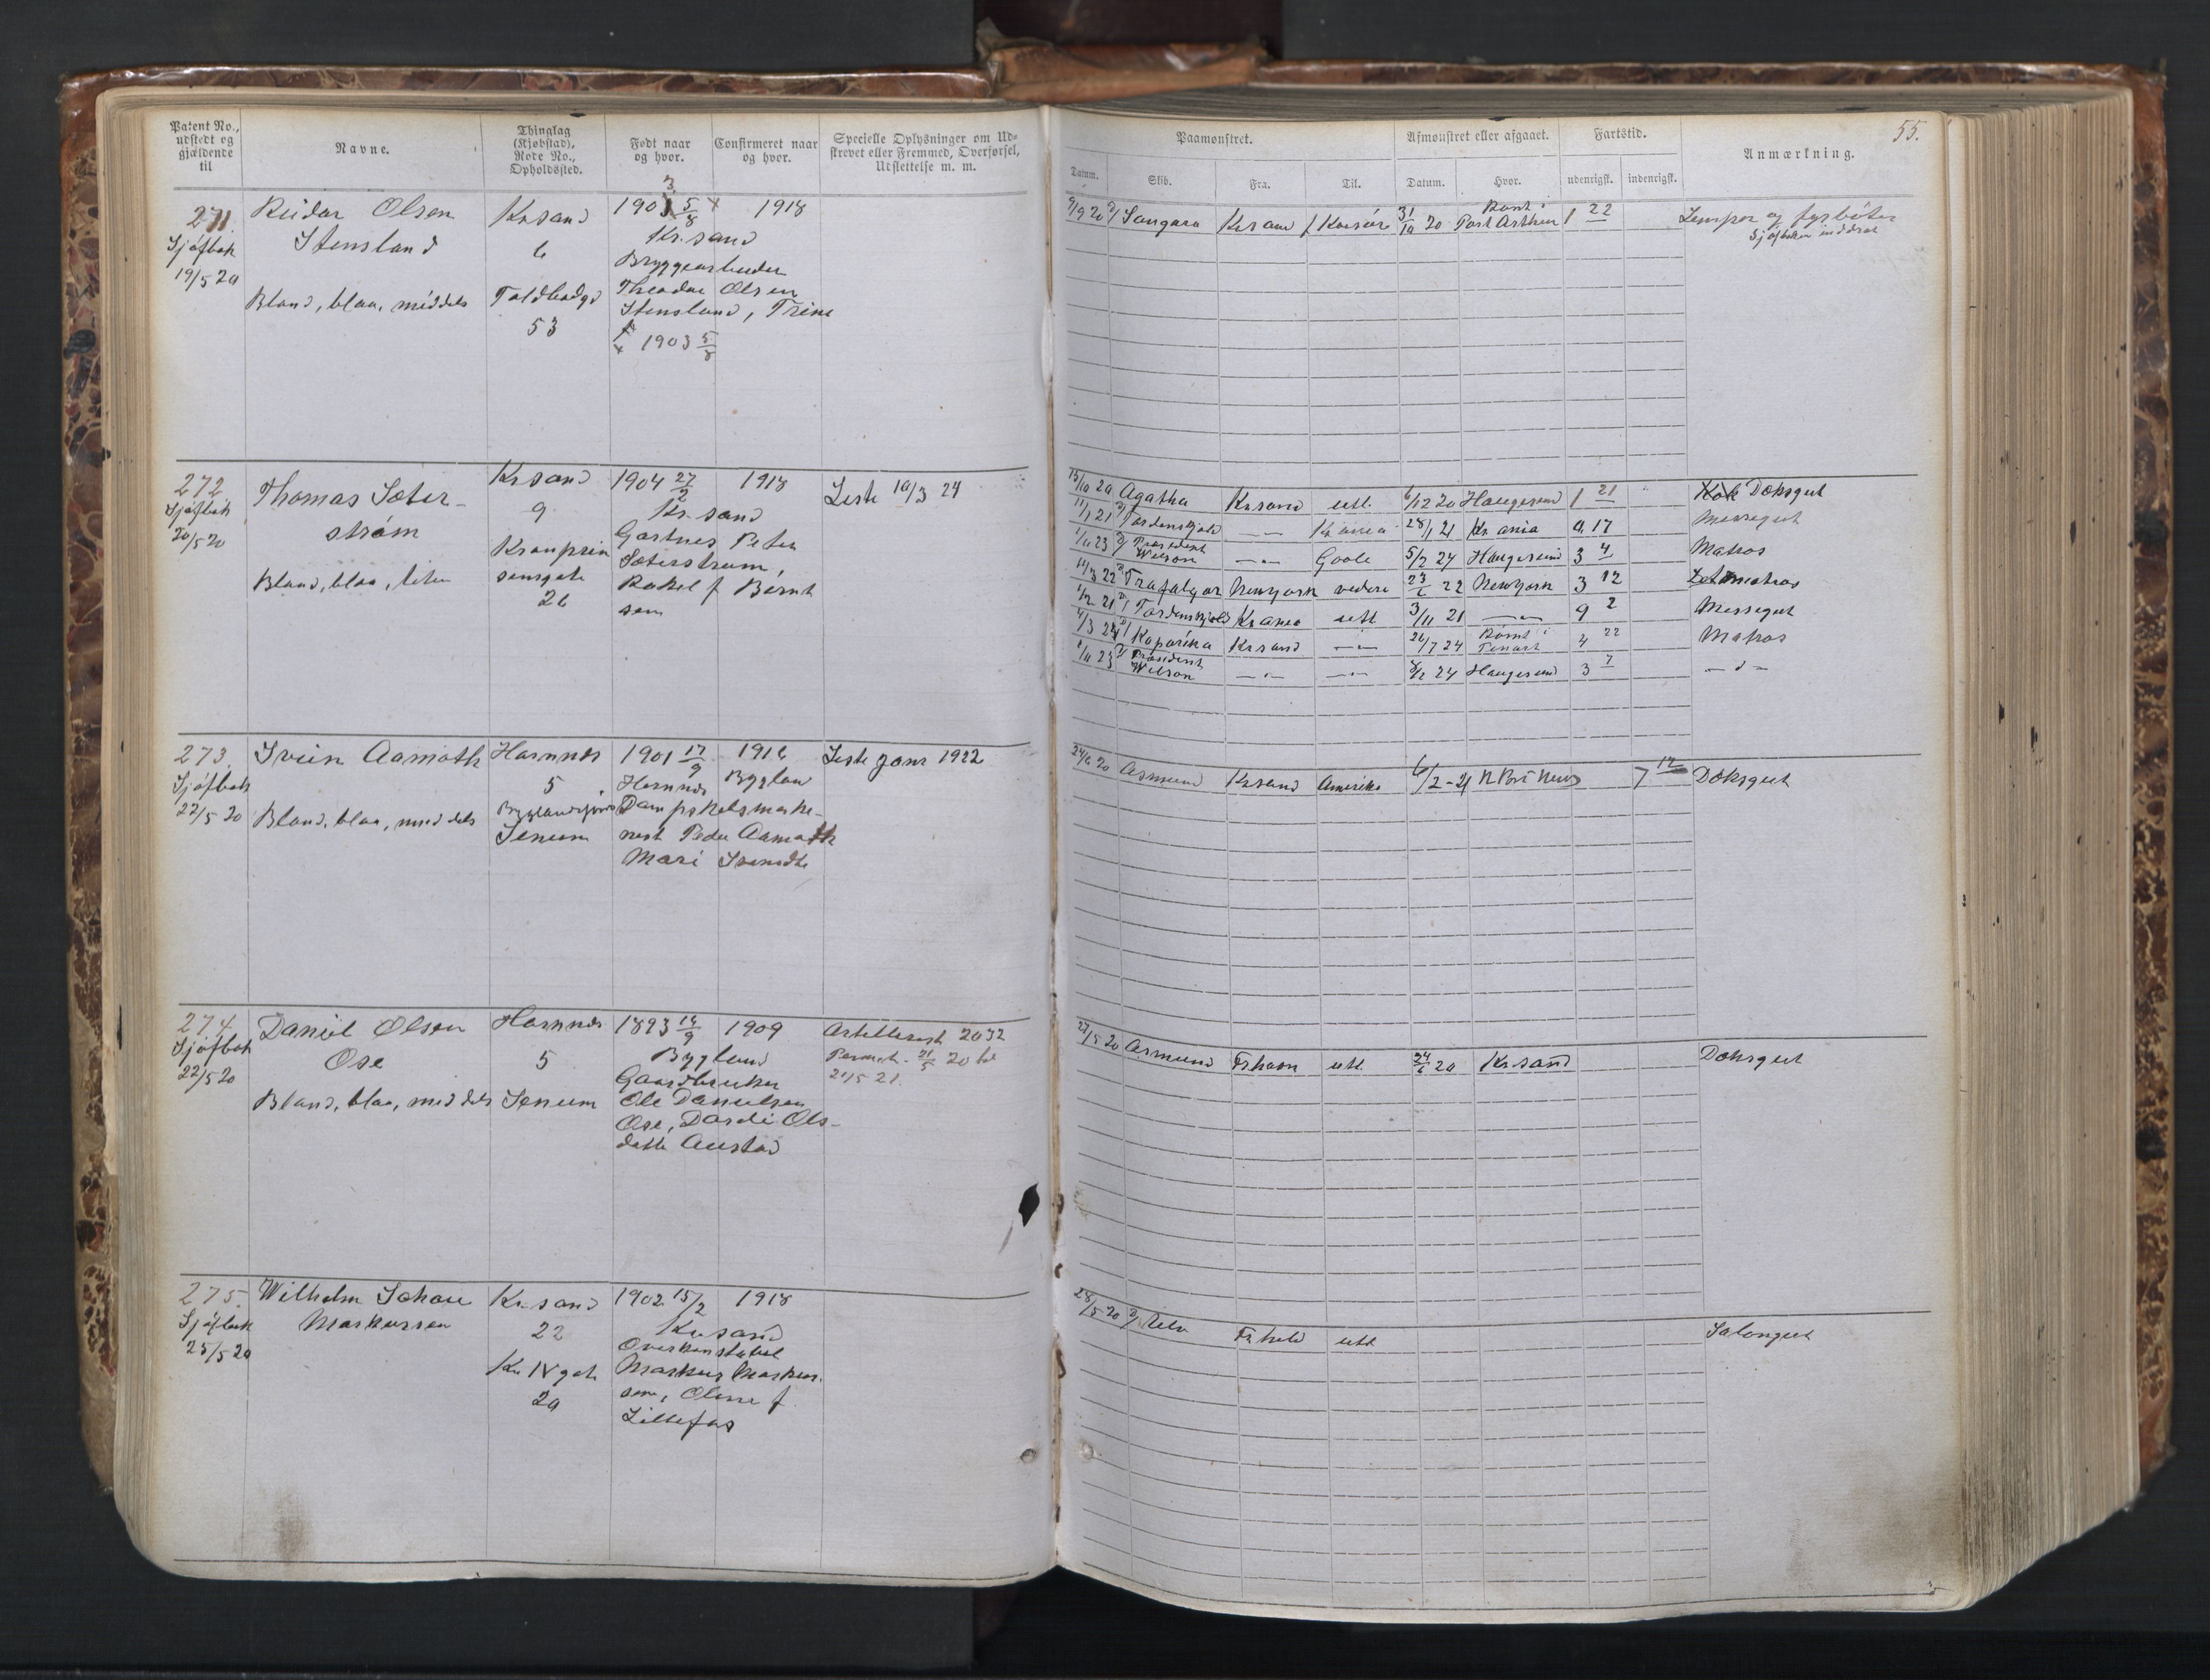 Patent No., udstedt og gjældende til
Navne.
Thinglag (Kjøbstad), Rode No., Opholdssted.
Født naar og hvor.
Confirmeret naar og hvor.
Specielle Oplysninger om Udskrevet eller Fremmed, Overførsel, Udslettelse m. m.
271.
Sjøfbok
19/5 20
Reidar Olsen
Stensland
Blond, blaa, middels
Kr.sand
6
Toldbodgd
53
1903 5/8 x 1918
Kr.sand
Bryggearbeider
Theodor Olsen
Stensland, Trine
x 1903 5/8
272
Sjøfbok
20/5 20
Thomas Soter-
strøm
Blond, blaa, liten
Kr.sand
9
Kronprin
sensgate
26
1904 27/2 1918
Kr.sand
Gartner Peter
Soterstrøm,
Rakel f Bernt
sen
Leste 10/3 24
273.
Sjøfbok
22/5 20
Svein Aamoth
Blond, blaa, middels
Hornnes
5
Byglandsfjord
Senum
1901 17/9 1916
Hornnes Bygland
Dampskibsmaski-
nist Peder Aamoth
Mari Svensdtr
Leste jan 1922
274.
Sjøfbok
22/5 20
Daniel Olsen
Ose
Blond, blaa, middels
Hornnes
5
Senum
1893 14/9 1909
Bygland
Gaardbruker
Ole Danielsen
Ose, Dardi Ols-
datte Austad
Artellerist 2032
Permit. 21/5 20 til
21/5 21.
275.
Sjøfbok
25/5 20
Wilhelm Johan
Markussen
Kr.sand
22
Kr IV gate
20
1902 15/2 1918
Kr.sand
Overkonstabel
Markus Markus-
sen, Oline f.
Lillefos
55.
Paamønstret.
Afmønstret eller afgaaet.
Fartstid.
Anmærkning.
Datum.
Skib.
Fra.
Til.
Datum.
Hvor.
udenrigsk.
indenrigsk.
9/9 20 D/ Sangara Kr.sand Korsør 31/10 20 Rømt i Port Arthur 1 22 Lemper og fyrbøter
Sjøfboken inddrat
15/10 20 Agatha Kr.sand utl. 6/12 20 Haugesund 1 21 Kok Dæksgut
11/1 21 D/ Tordenskjold —"— Kr.ania 28/1 21 Kr.ania 0 17 Messegut
1/11 23 D/ President Wilson —"— Goole 5/2 24 Haugesund 3 4 Matros
11/3 22 D/ Trafalgar Newyork videre 23/6 22 Newyork 3 12 Letmatros
1/2 21 D/ Tordenskjold Kr.ania utl 3/11 21 —"— 9 2 Messegut
4/3 24 D/ Kaparika Kr.sand —"— 26/7 24 Rømt i 4 22 Matros
1/11 23 D/ President Wilson —"— —"— 8/2 24 Haugesund 3 7 — d —
24/6 20 Asmund Kr.sand Amerika 6/2 - 21 N Port News 7 12 Dæksgut
22/5 20 Asmund Frhavn utl 24/6 20 Kr.sand Dæksgut
28/5 20 D/ utl Salongut